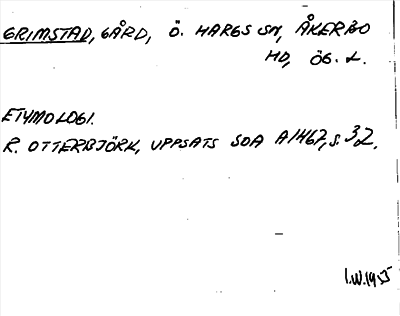 GRIMSTAD, GÅRD, Ö. HARGS SN, ÅKERBO
HD, ÖG. L.
ETYMOLOGI.
R. OTTERBJÖRK, UPPSATS SOA A1467, S. 32.
I.W. 1955